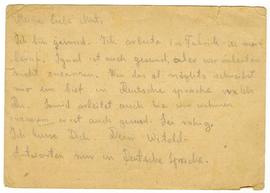 Meine liebe Mut,
Ich bin gesund. Ich arbeite in Fabrik
ist auch gesund, aber wir arbeiten
nicht zusammen. Wen das ist möglich schreibt
mir ein brief in Deutsche sprache
arbeitet auch bei wir wohnen
ist auch gesund. Sei ruhig.
Ich küsse Dich. Dein Witold.
Antworten nur in Deutsche Sprache.